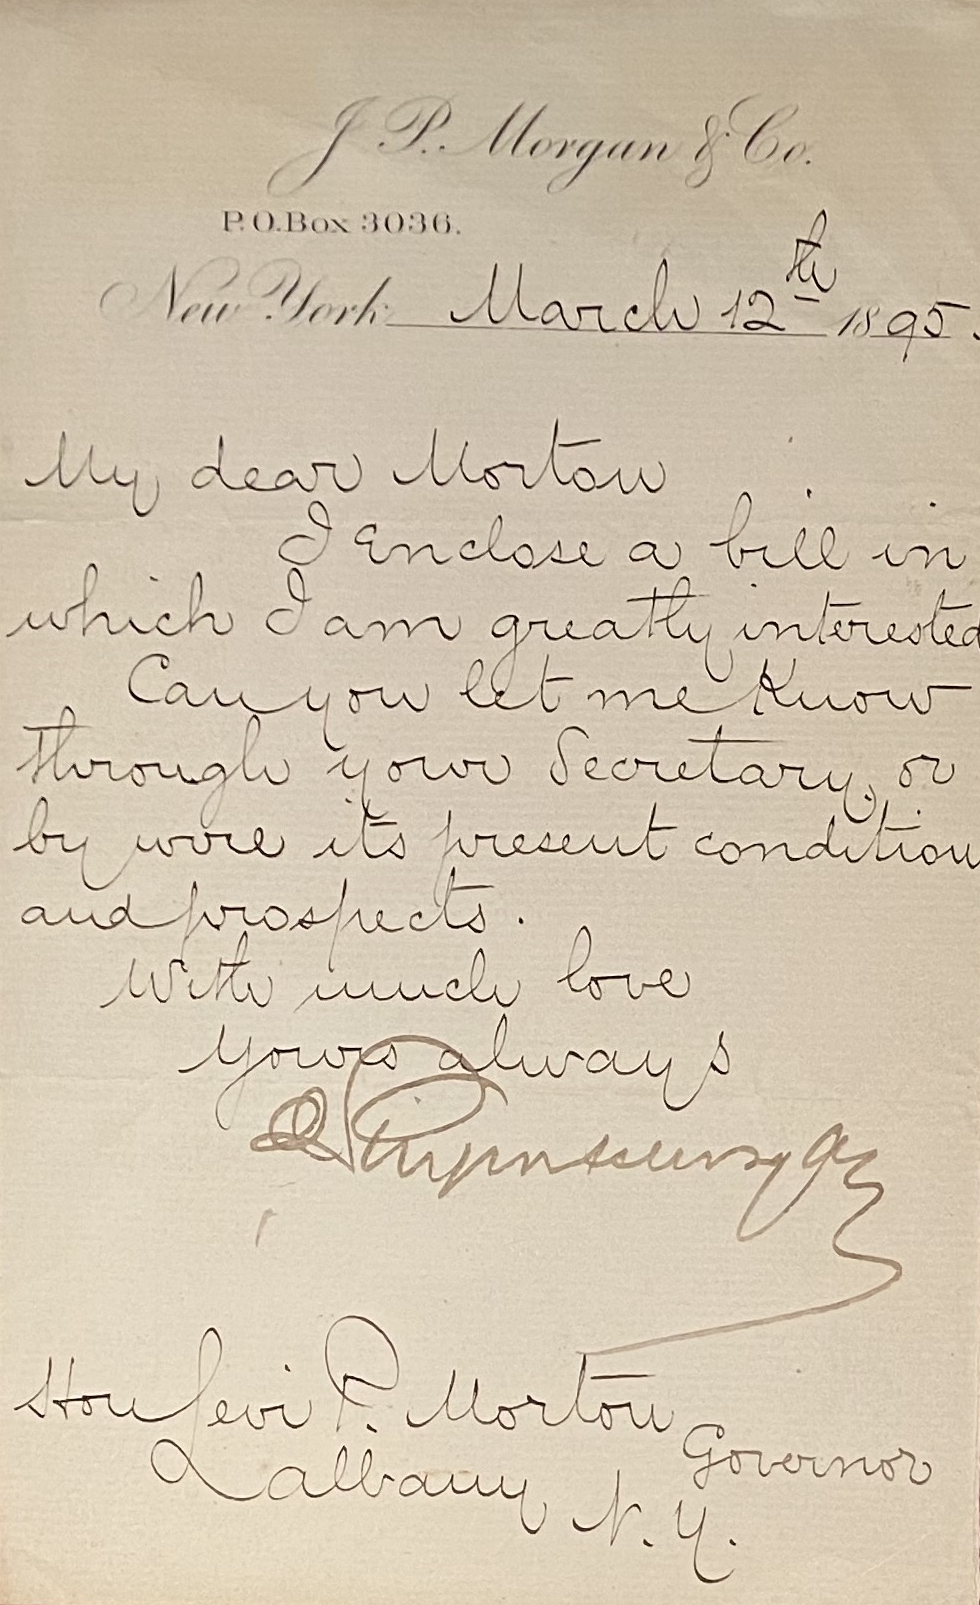 J. P. Morgan & Co.
P.O. Box 3036.
New York March 12th 1895.
My dear Morton
I Enclose a bill in
which I am greatly interested
Can you let me Know
through your Secretary, or
by wire its present condition
and prospects.
With much love
Yours always
J Pierpont Morgan
Hon Levi P. Morton
Governor
Albany
N. Y.